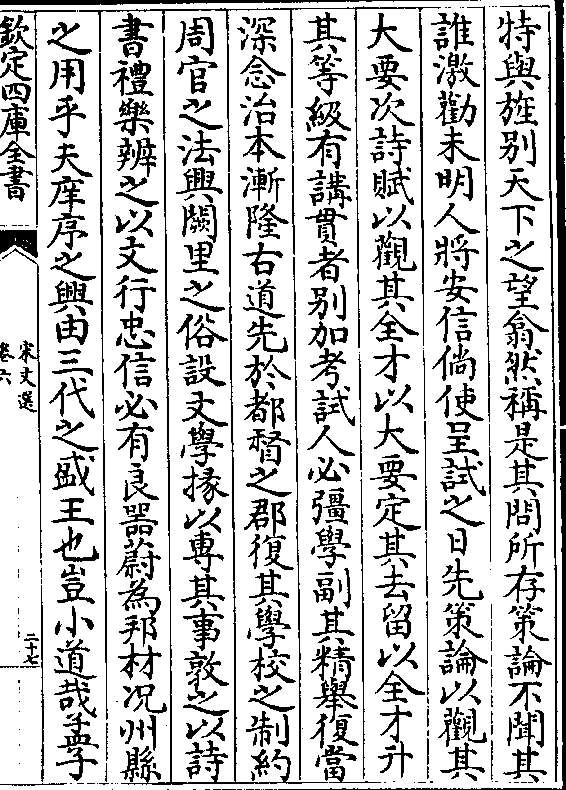 特與旌别天下之望翕然稱是其間所存策論不聞其
誰激勸未明人將安信倘使呈試之日先策論以觀其
大要次詩賦以觀其全才以大要定其去留以全才升
其等級有講貫者别加考試人必彊學副其精舉復當
深念治本漸隆古道先於都督之郡復其學校之制約
周官之法興闕里之俗設文學掾以專其事敦之以詩
書禮樂辨之以文行忠信必有良器蔚為邦材况州縣
之用乎夫庠序之興由三代之盛王也豈小道哉孟子
欽定四庫全書
宋文選
卷六
二十七